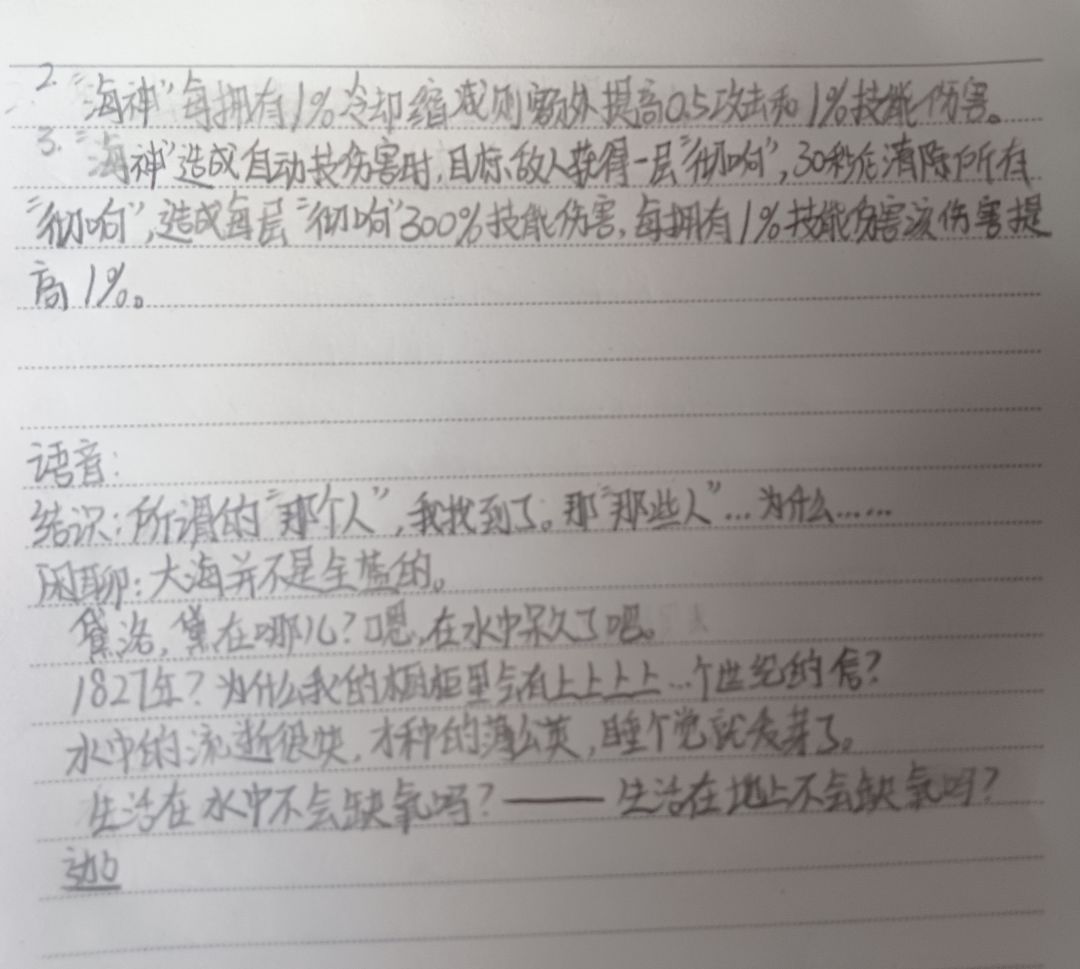 2. "海神"每拥有1%冷却缩减则额外提高0.5攻击和1%技能伤害。
3. "海神"造成自动技伤害时,目标敌人获得一层"彻响",30秒后清除所有
"彻响",造成每层"彻响"300%技能伤害,每拥有1%技能伤害该伤害提
高1%。
语音:
结识:所谓的"那个人",我找到了。那"那些人"…为什么……
闲聊:大海并不是全蓝的。
黛洛,黛在哪儿?嗯,在水中呆久了吧。
1827年?为什么我的橱柜里会有上上上上…个世纪的信?
水中的流逝很快,才种的蒲公英,睡个觉就发芽了。
生活在水中不会缺氧吗?——生活在地上不会缺氧吗?